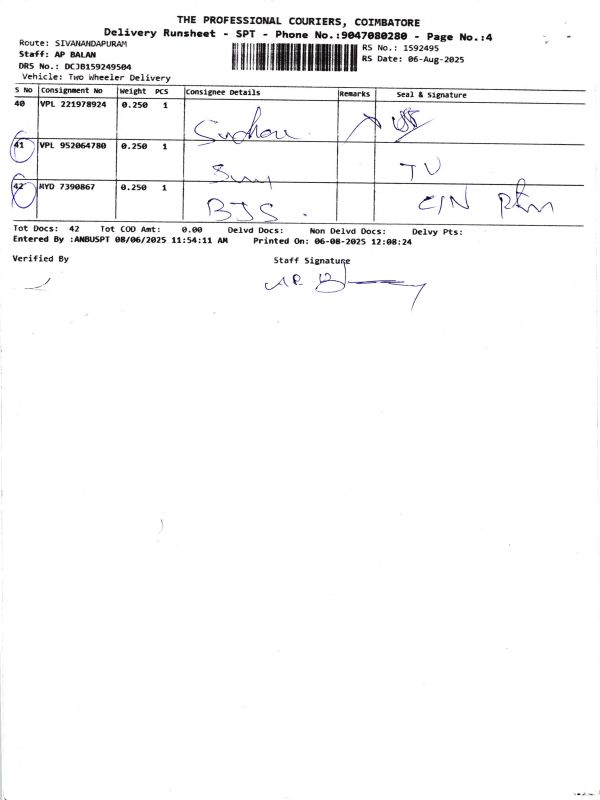 THE PROFESSIONAL COURIERS, COIMBATORE
Delivery Runsheet - SPT - Phone No.:9047080280 - Page No.:4
Route: SIVANANDAPURAM
RS No.: 1592495
Staff: AP BALAN
RS Date: 06-Aug-2025
DRS No.: DCJB159249504
Vehicle: Two Wheeler Delivery
S No Consignment No Weight PCS Consignee Details Remarks Seal & Signature
40 VPL 221978924 0.250 1
41 VPL 952064780 0.250 1
TV
42 MYD 7390867 0.250 1
BJS. C/N
Tot Docs: 42 Tot COD Amt: 0.00 Delvd Docs: Non Delvd Docs: Delvy Pts:
Entered By :ANBUSPT 08/06/2025 11:54:11 AM Printed On: 06-08-2025 12:08:24
Verified By Staff Signature
AP B